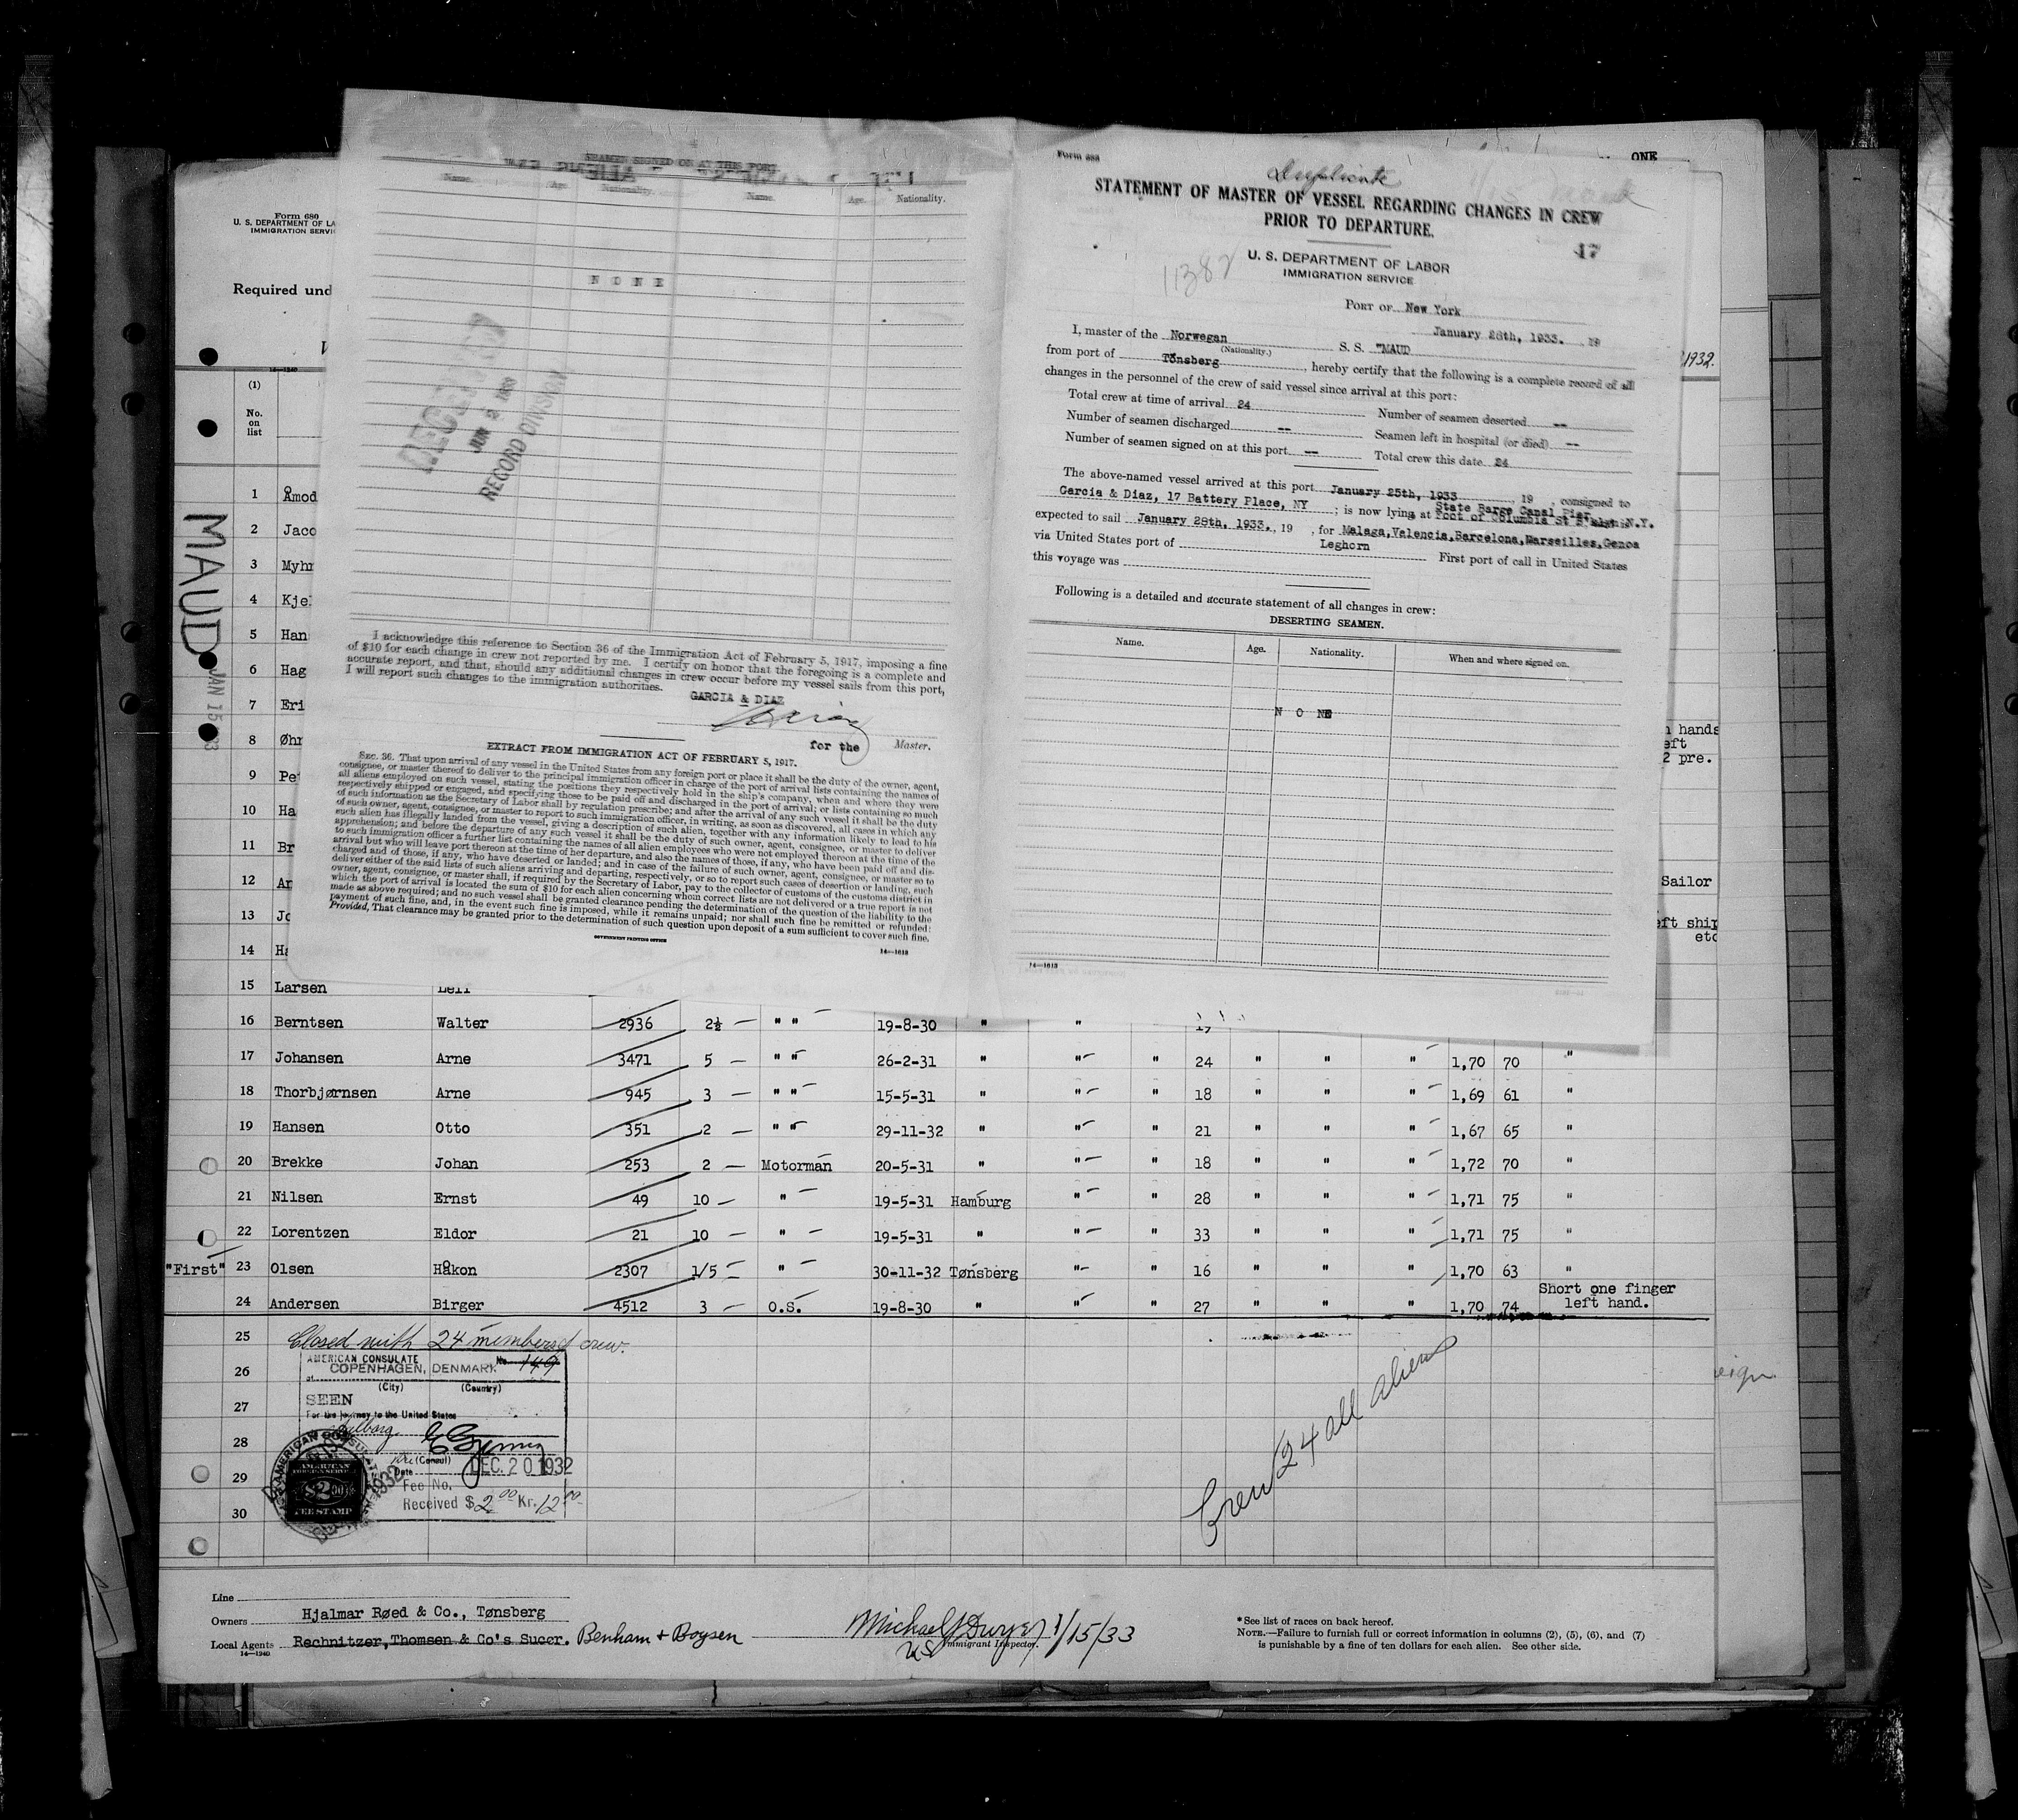 SEAMEN SIGNED ON AT THIS PORT
Name. Age. Nationality. Name. Age. Nationality.
N O N E
JUN 2 1933
RECORD DIVISION
I acknowledge this reference to Section 36 of the Immigration Act of February 5, 1917, imposing a fine
of $10 for each change in crew not reported by me. I certify on honor that the foregoing is a complete and
accurate report, and that, should any additional changes in crew occur before my vessel sails from this port,
I will report such changes to the immigration authorities.
GARCIA & DIAZ
for the Master.
EXTRACT FROM IMMIGRATION ACT OF FEBRUARY 5, 1917.
SEC. 36. That upon arrival of any vessel in the United States from any foreign port or place it shall be the duty of the owner, agent,
consignee, or master thereof to deliver to the principal immigration officer in charge of the port of arrival lists containing the names of
all aliens employed on such vessel, stating the positions they respectively hold in the ship's company, when and where they were
respectively shipped or engaged, and specifying those to be paid off and discharged in the port of arrival; or lists containing so much
of such information as the Secretary of Labor shall by regulation prescribe; and after the arrival of any such vessel it shall be the duty
of such owner, agent, consignee, or master to report to such immigration officer, in writing, as soon as discovered, all cases in which any
such alien has illegally landed from the vessel, giving a description of such alien, together with any information likely to lead to his
apprehension; and before the departure of any such vessel it shall be the duty of such owner, agent, consignee, or master to deliver
to such immigration officer a further list containing the names of all alien employees who were not employed thereon at the time of the
arrival but who will leave port thereon at the time of her departure, and also the names of those, if any, who have been paid off and dis-
charged and of those, if any, who have deserted or landed; and in case of the failure of such owner, agent, consignee, or master so to
deliver either of the said lists of such aliens arriving and departing, respectively, or so to report such cases of desertion or landing, such
owner, agent, consignee, or master shall, if required by the Secretary of Labor, pay to the collector of customs of the customs district in
which the port of arrival is located the sum of $10 for each alien concerning whom correct lists are not delivered or a true report is not
made as above required; and no such vessel shall be granted clearance pending the determination of the question of the liability to the
payment of such fine, and, in the event such fine is imposed, while it remains unpaid; nor shall such fine be remitted or refunded:
Provided, That clearance may be granted prior to the determination of such question upon deposit of a sum sufficient to cover such fine.
GOVERNMENT PRINTING OFFICE
14—1013
Form 688
Duplicate
STATEMENT OF MASTER OF VESSEL REGARDING CHANGES IN CREW
PRIOR TO DEPARTURE.
17
11382
U. S. DEPARTMENT OF LABOR
IMMIGRATION SERVICE
PORT OF New York
January 28th, 1933. , 19
I, master of the Norwegan S. S. "MAUD
(Nationality.)
from port of Tönsberg , hereby certify that the following is a complete record of all
changes in the personnel of the crew of said vessel since arrival at this port:
Total crew at time of arrival 24 Number of seamen deserted --
Number of seamen discharged -- Seamen left in hospital (or died) --
Number of seamen signed on at this port -- Total crew this date 24
The above-named vessel arrived at this port January 25th, 1933 , 19 , consigned to
Garcia & Diaz, 17 Battery Place, NY ; is now lying at State Barge Canal Pier
Foot of Columbia St N.Y.
expected to sail January 28th, 1933. , 19 , for Malaga,Valencia,Barcelona,Marseilles,Genoa
Leghorn
via United States port of First port of call in United States
this voyage was
Following is a detailed and accurate statement of all changes in crew:
DESERTING SEAMEN.
Name. Age. Nationality. When and where signed on.
N O N E
14—1013
ONE
Form 680
U. S. DEPARTMENT OF LA
IMMIGRATION SERVI
Required und
1932.
14—1240
(1)
No.
on
list
MAUD
JAN 15
1 Åmod
2 Jaco
3 Myhr
4 Kje
5 Han
6 Hag
7 Eri
8 Øhr
9 Pe
10 Ha
11 Br
12 An
13 Jo
14 Ha
hands
eft
2 pre.
Sailor
eft ship
etc
15 Larsen Leif
16 Berntsen Walter 2936 2½ — " " 19-8-30 " " 19
17 Johansen Arne 3471 5 — " " 26-2-31 " " " 24 " " " 1,70 70 "
18 Thorbjørnsen Arne 945 3 — " " 15-5-31 " " " 18 " " " 1,69 61 "
19 Hansen Otto 351 2 — " " 29-11-32 " " " 21 " " " 1,67 65 "
20 Brekke Johan 253 2 — Motorman 20-5-31 " " " 18 " " " 1,72 70 "
21 Nilsen Ernst 49 10 — " 19-5-31 Hamburg " " 28 " " " 1,71 75 "
22 Lorentzen Eldor 21 10 — " 19-5-31 " " " 33 " " " 1,71 75 "
"First" 23 Olsen Håkon 2307 1/5 — " 30-11-32 Tønsberg " " 16 " " " 1,70 63 "
24 Andersen Birger 4512 3 — O.S. 19-8-30 " " " 27 " " " 1,70 74 Short one finger
left hand.
25 Closed with 24 members of crew.
26
27
28
29
30
AMERICAN CONSULATE No. 149
at COPENHAGEN, DENMARK
(City) (Country)
SEEN
For the journey to the United States
(Consul)
Date DEC. 20 1932
Fee No.
Received $2.00 Kr. 12.00
AMERICAN
FOREIGN SERVICE
$2.00
FEE STAMP
Crew 24 all aliens
eign
Line
Owners Hjalmar Røed & Co., Tønsberg
Local Agents Rechnitzer,Thomsen & Co's Sucer. Benham + Boysen
14—1240
Michael J Dwyer 1/15/33
US Immigrant Inspector.
* See list of races on back hereof.
NOTE.—Failure to furnish full or correct information in columns (2), (5), (6), and (7)
is punishable by a fine of ten dollars for each alien. See other side.